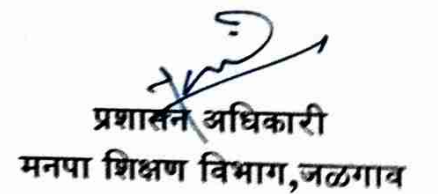 प्रशासन अधिकारी
मनपा शिक्षण विभाग,जळगाव